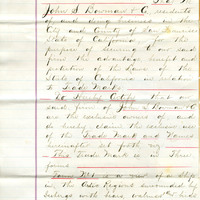 John S. Bowman & Co. residents
of and doing business in the
City and County of San Francisco
State of California for the
purpose of securing to our
said firm the advantage benefit
and protection of the Laws of the
State of California in relation
to Trade Marks
Do Hereby Certify that our
said firm of John S. Bowman & Co
are the exclusive owners of, and
do hereby claim the exclusive use
of the Trade Mark and Names
hereinafter set forth viz:
The Trade Mark is in Three
forms
Form No 1 is a view of a Ship
in the Arctic Regions surrounded by
Icebergs with Seals, Walrus &